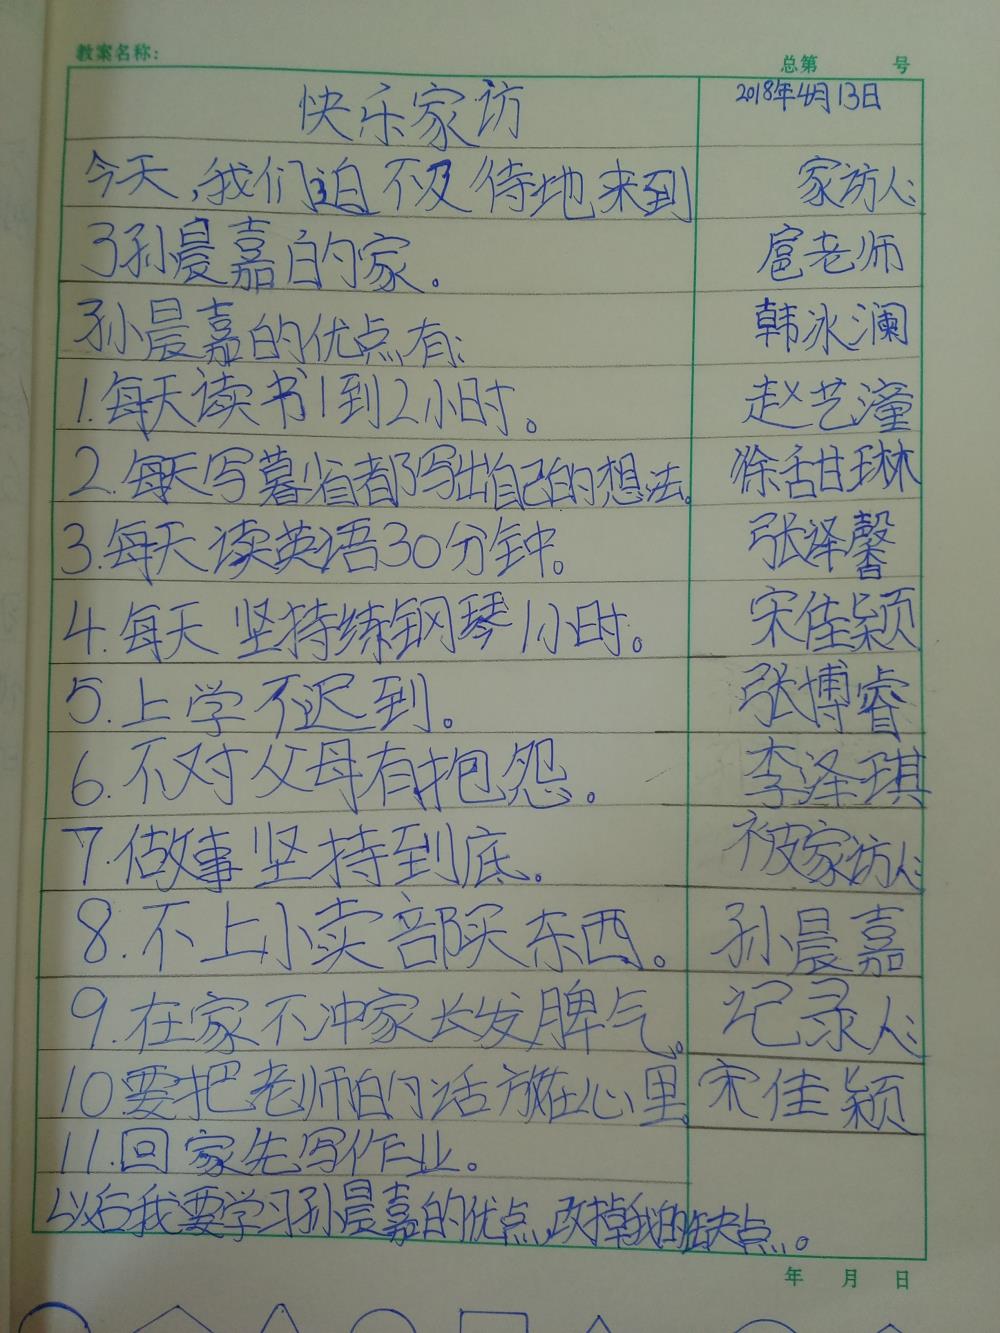 教案名称:
总第 号
快乐家访
2018年4月13日
今天,我们迫不及待地来到
了孙晨嘉的家。
孙晨嘉的优点有:
1.每天读书1到2小时。
2.每天写暮省都写出自己的想法。
3.每天读英语30分钟。
4.每天坚持练钢琴1小时。
5.上学不迟到。
6.不对父母有抱怨。
7.做事坚持到底。
8.不上小卖部买东西。
9.在家不冲家长发脾气。
10要把老师的话放在心里
11.回家先写作业。
以后我要学习孙晨嘉的优点,改掉我的缺点。
家访人:
扈老师
韩冰澜
赵艺潼
徐甜琳
张泽馨
宋佳颖
张博睿
李泽琪
被家访人:
孙晨嘉
记录人:
宋佳颖
年 月 日